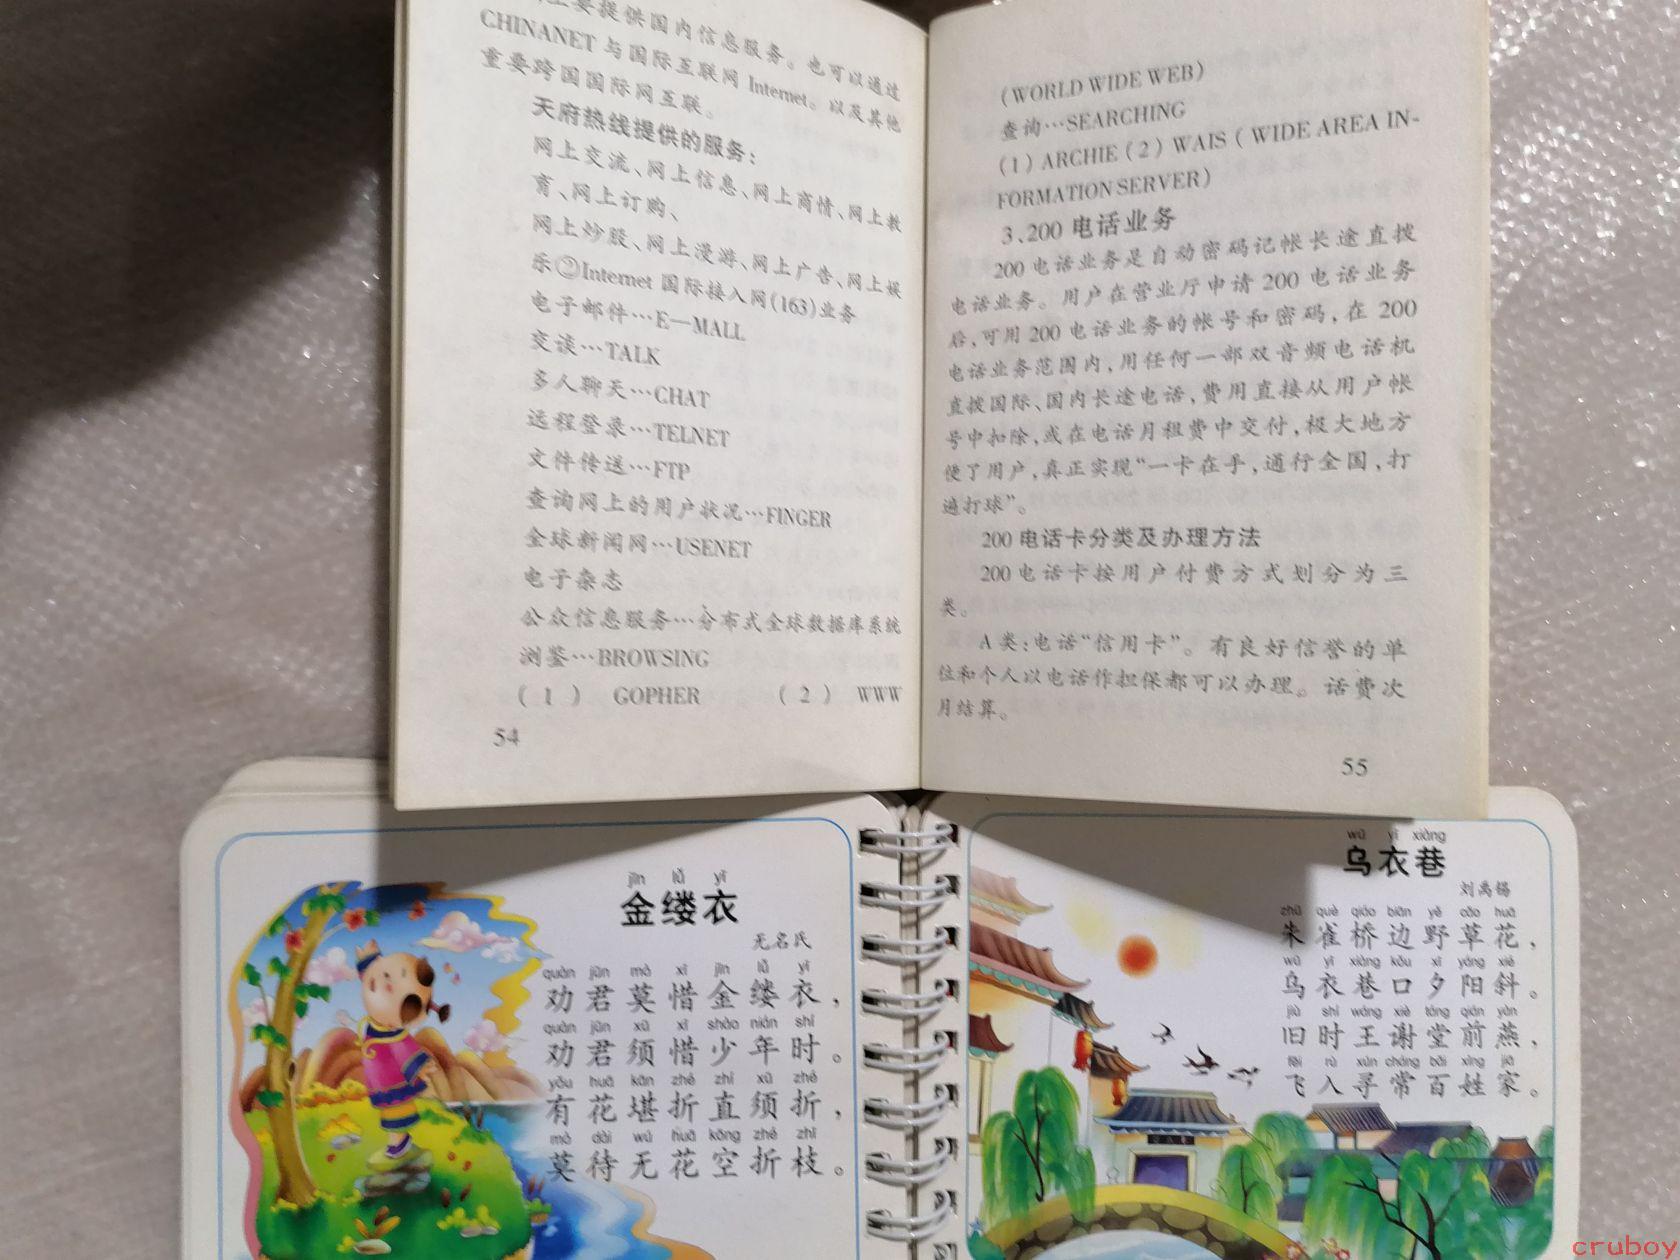 要提供国内信息服务。也可以通过
CHINANET 与国际互联网 Internet。以及其他
重要跨国国际网互联。
天府热线提供的服务：
网上交流、网上信息、网上商情、网上教
育、网上订购、
网上炒股、网上漫游、网上广告、网上娱
乐②Internet 国际接入网(163)业务
电子邮件…E—MALL
交谈…TALK
多人聊天…CHAT
远程登录…TELNET
文件传送…FTP
查询网上的用户状况…FINGER
全球新闻网…USENET
电子杂志
公众信息服务…分布式全球数据库系统
浏鉴…BROWSING
(1) GOPHER (2) WWW
54
(WORLD WIDE WEB)
查询…SEARCHING
(1) ARCHIE (2) WAIS (WIDE AREA IN-
FORMATION SERVER)
3、200 电话业务
200 电话业务是自动密码记帐长途直拨
电话业务。用户在营业厅申请 200 电话业务
后，可用 200 电话业务的帐号和密码，在 200
电话业务范围内，用任何一部双音频电话机
直拨国际、国内长途电话，费用直接从用户帐
号中扣除，或在电话月租费中交付，极大地方
便了用户，真正实现“一卡在手，通行全国，打
遍打球”。
200 电话卡分类及办理方法
200 电话卡按用户付费方式划分为三
类。
A 类：电话“信用卡”。有良好信誉的单
位和个人以电话作担保都可以办理。话费次
月结算。
55
jīn lǚ yī
金缕衣
无名氏
quàn jūn mò xī jīn lǚ yī
劝君莫惜金缕衣，
quàn jūn xū xī shào nián shí
劝君须惜少年时。
yǒu huā kān zhé zhí xū zhé
有花堪折直须折，
mò dài wú huā kōng zhé zhī
莫待无花空折枝。
wū yī xiàng
乌衣巷
刘禹锡
zhū què qiáo biān yě cǎo huā
朱雀桥边野草花，
wū yī xiàng kǒu xī yáng xié
乌衣巷口夕阳斜。
jiù shí wáng xiè táng qián yàn
旧时王谢堂前燕，
fēi rù xún cháng bǎi xìng jiā
飞入寻常百姓家。
cruboy